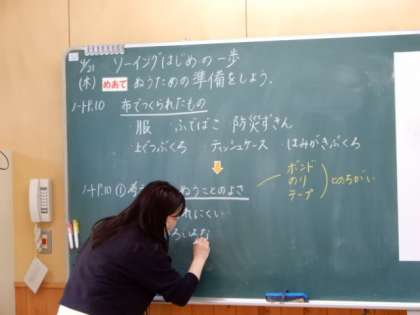 4/21 ソーイングはじめの一歩
(木) めあて ぬうための準備をしよう.
ノートP.10 布でつくられたもの
服 ・ふでばこ 防災ずきん
・上ぐつぶくろ ・ティッシュケース ・はみがきぶくろ
ノートP.10 ① ぬうことのよさ
れにくい
ボンド
のり
テープ
とのちがい